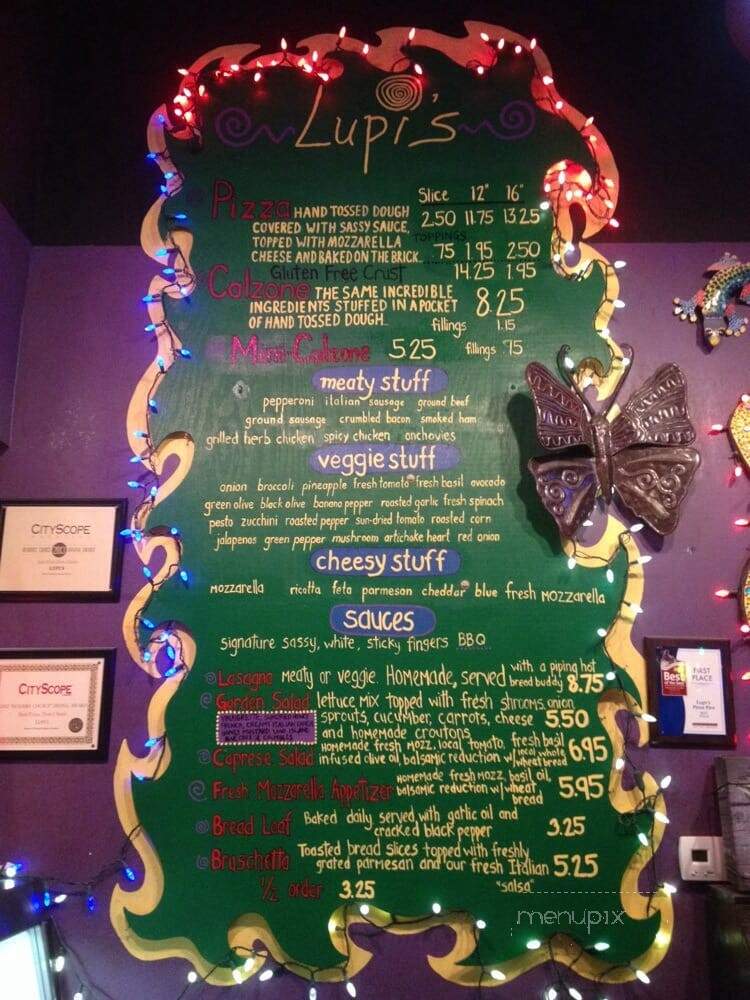 Lupi's
Slice 12" 16"
Pizza HAND TOSSED DOUGH 2.50 11.75 13.25
COVERED WITH SASSY SAUCE,
TOPPINGS
TOPPED WITH MOZZARELLA .75 1.95 2.50
CHEESE AND BAKED ON THE BRICK.
Gluten Free Crust 14.25 1.95
Calzone THE SAME INCREDIBLE 8.25
INGREDIENTS STUFFED IN A POCKET
OF HAND TOSSED DOUGH fillings 1.15
Mini-Calzone 5.25 fillings .75
meaty stuff
pepperoni italian sausage ground beef
ground sausage crumbled bacon smoked ham
grilled herb chicken spicy chicken anchovies
veggie stuff
onion broccoli pineapple fresh tomato fresh basil avocado
green olive black olive banana pepper roasted garlic fresh spinach
pesto zucchini roasted pepper sun-dried tomato roasted corn
jalapenos green pepper mushroom artichoke heart red onion
cheesy stuff
mozzarella ricotta feta parmesan cheddar blue fresh mozzarella
sauces
signature sassy, white, sticky fingers BBQ
Lasagna meaty or veggie. Homemade, served with a piping hot
bread buddy 8.75
Garden Salad lettuce mix topped with fresh shrooms, onion,
sprouts, cucumber, carrots, cheese 5.50
and homemade croutons
Caprese Salad homemade fresh mozz, local tomato, fresh basil
infused olive oil, balsamic reduction w/ local whole wheat bread 6.95
Fresh Mozzarella Appetizer homemade fresh mozz, basil, oil,
balsamic reduction w/ wheat bread 5.95
Bread Loaf Baked daily, served with garlic oil and
cracked black pepper 3.25
Bruschetta Toasted bread slices topped with freshly
grated parmesan and our fresh Italian 5.25
1/2 order 3.25 "salsa"
menupix
CITYSCOPE
CITYSCOPE
Best
FIRST
PLACE